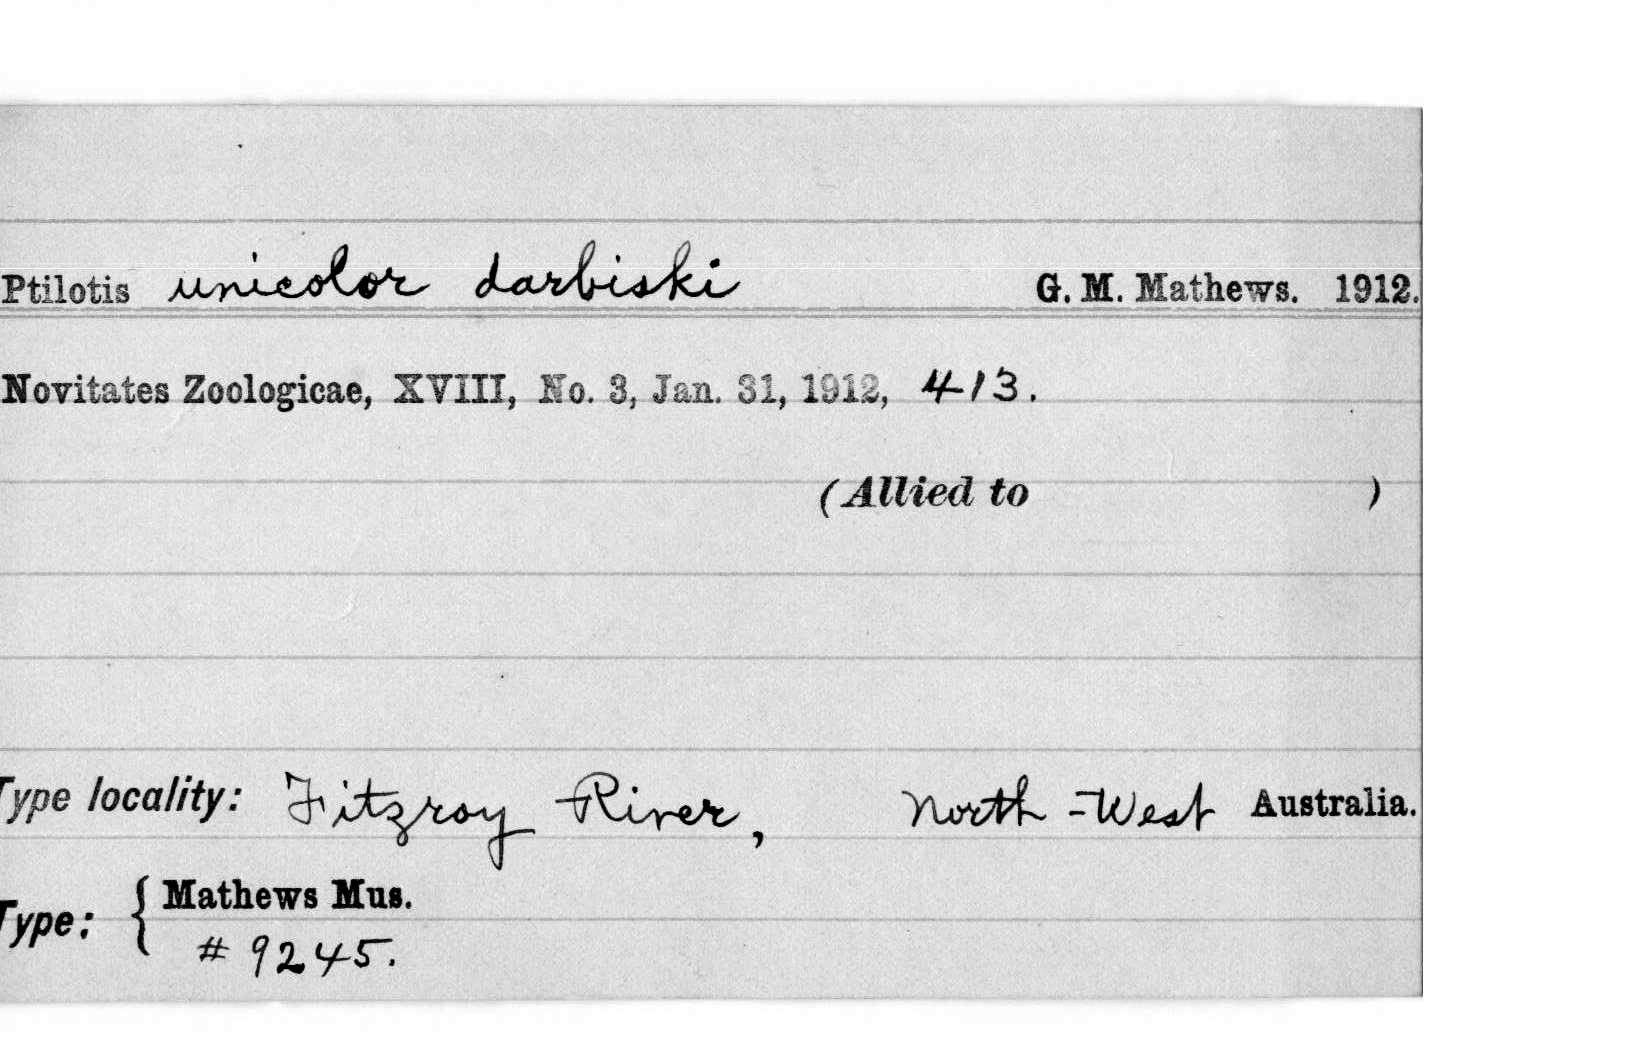 Ptilotis unicolor darbiski G. M. Mathews. 1912.
Novitates Zoologicae, XVIII, No. 3, Jan. 31, 1912, 413.
(Allied to )
Type locality: Fitzroy River, North-West Australia.
Type: { Mathews Mus.
# 9245.